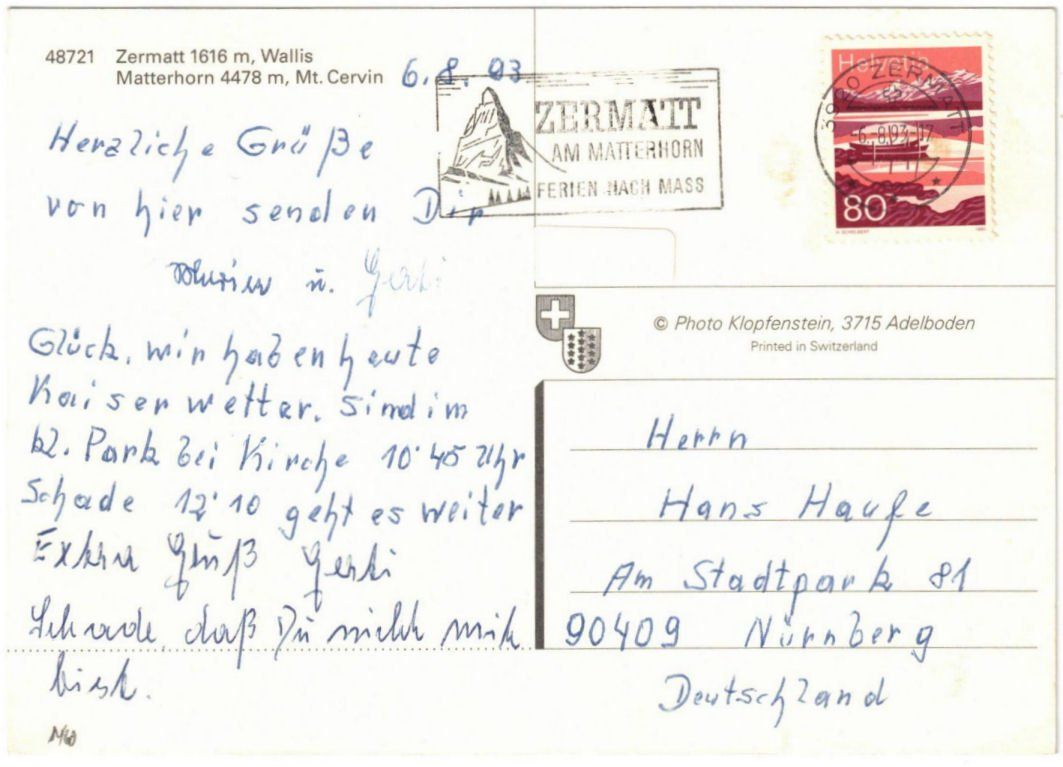 48721 Zermatt 1616 m, Wallis
Matterhorn 4478 m, Mt. Cervin
6.8.93
Herzliche Grüße
von hier senden Dir
u. Gerti
Glück, wir haben heute
Kaiserwetter. Sind im
kl. Park bei Kirche 10·45 Uhr
Schade 12·10 geht es weiter
Extra Gruß Gerti
Schade, daß Du nicht mit
bist.
ZERMATT
AM MATTERHORN
FERIEN NACH MASS
Helvetia
80
3920 ZERMATT
-6.-8.93-17
© Photo Klopfenstein, 3715 Adelboden
Printed in Switzerland
Herrn
Hans Haufe
Am Stadtpark 81
90409 Nürnberg
Deutschland